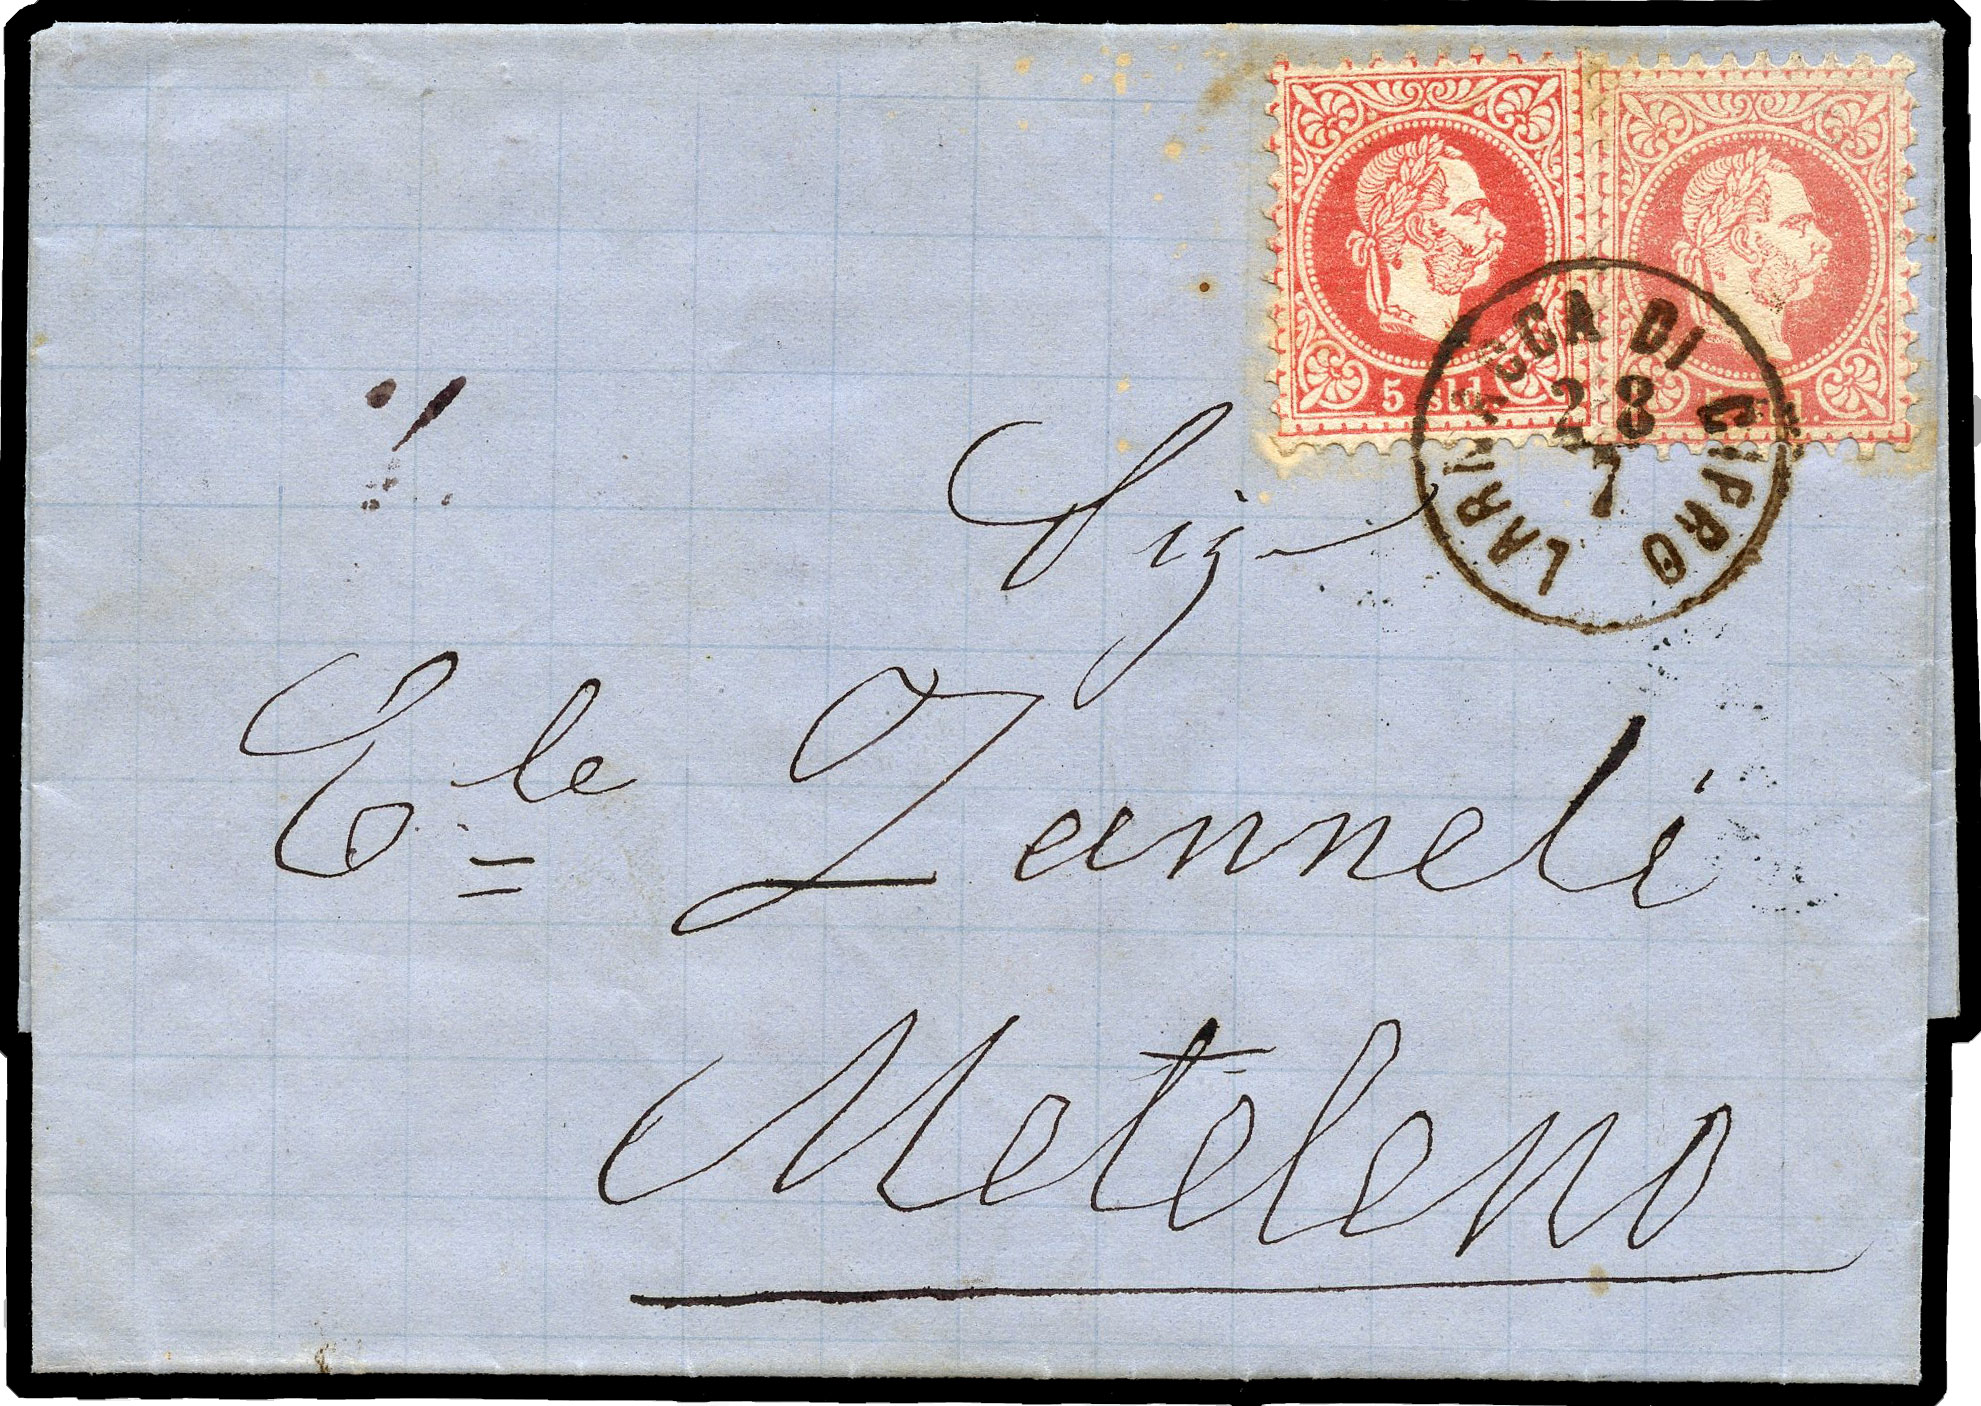 5 sld.
LARNACCA DI CIPRO
28
7
Sig
E le Zanneli
Meteleno